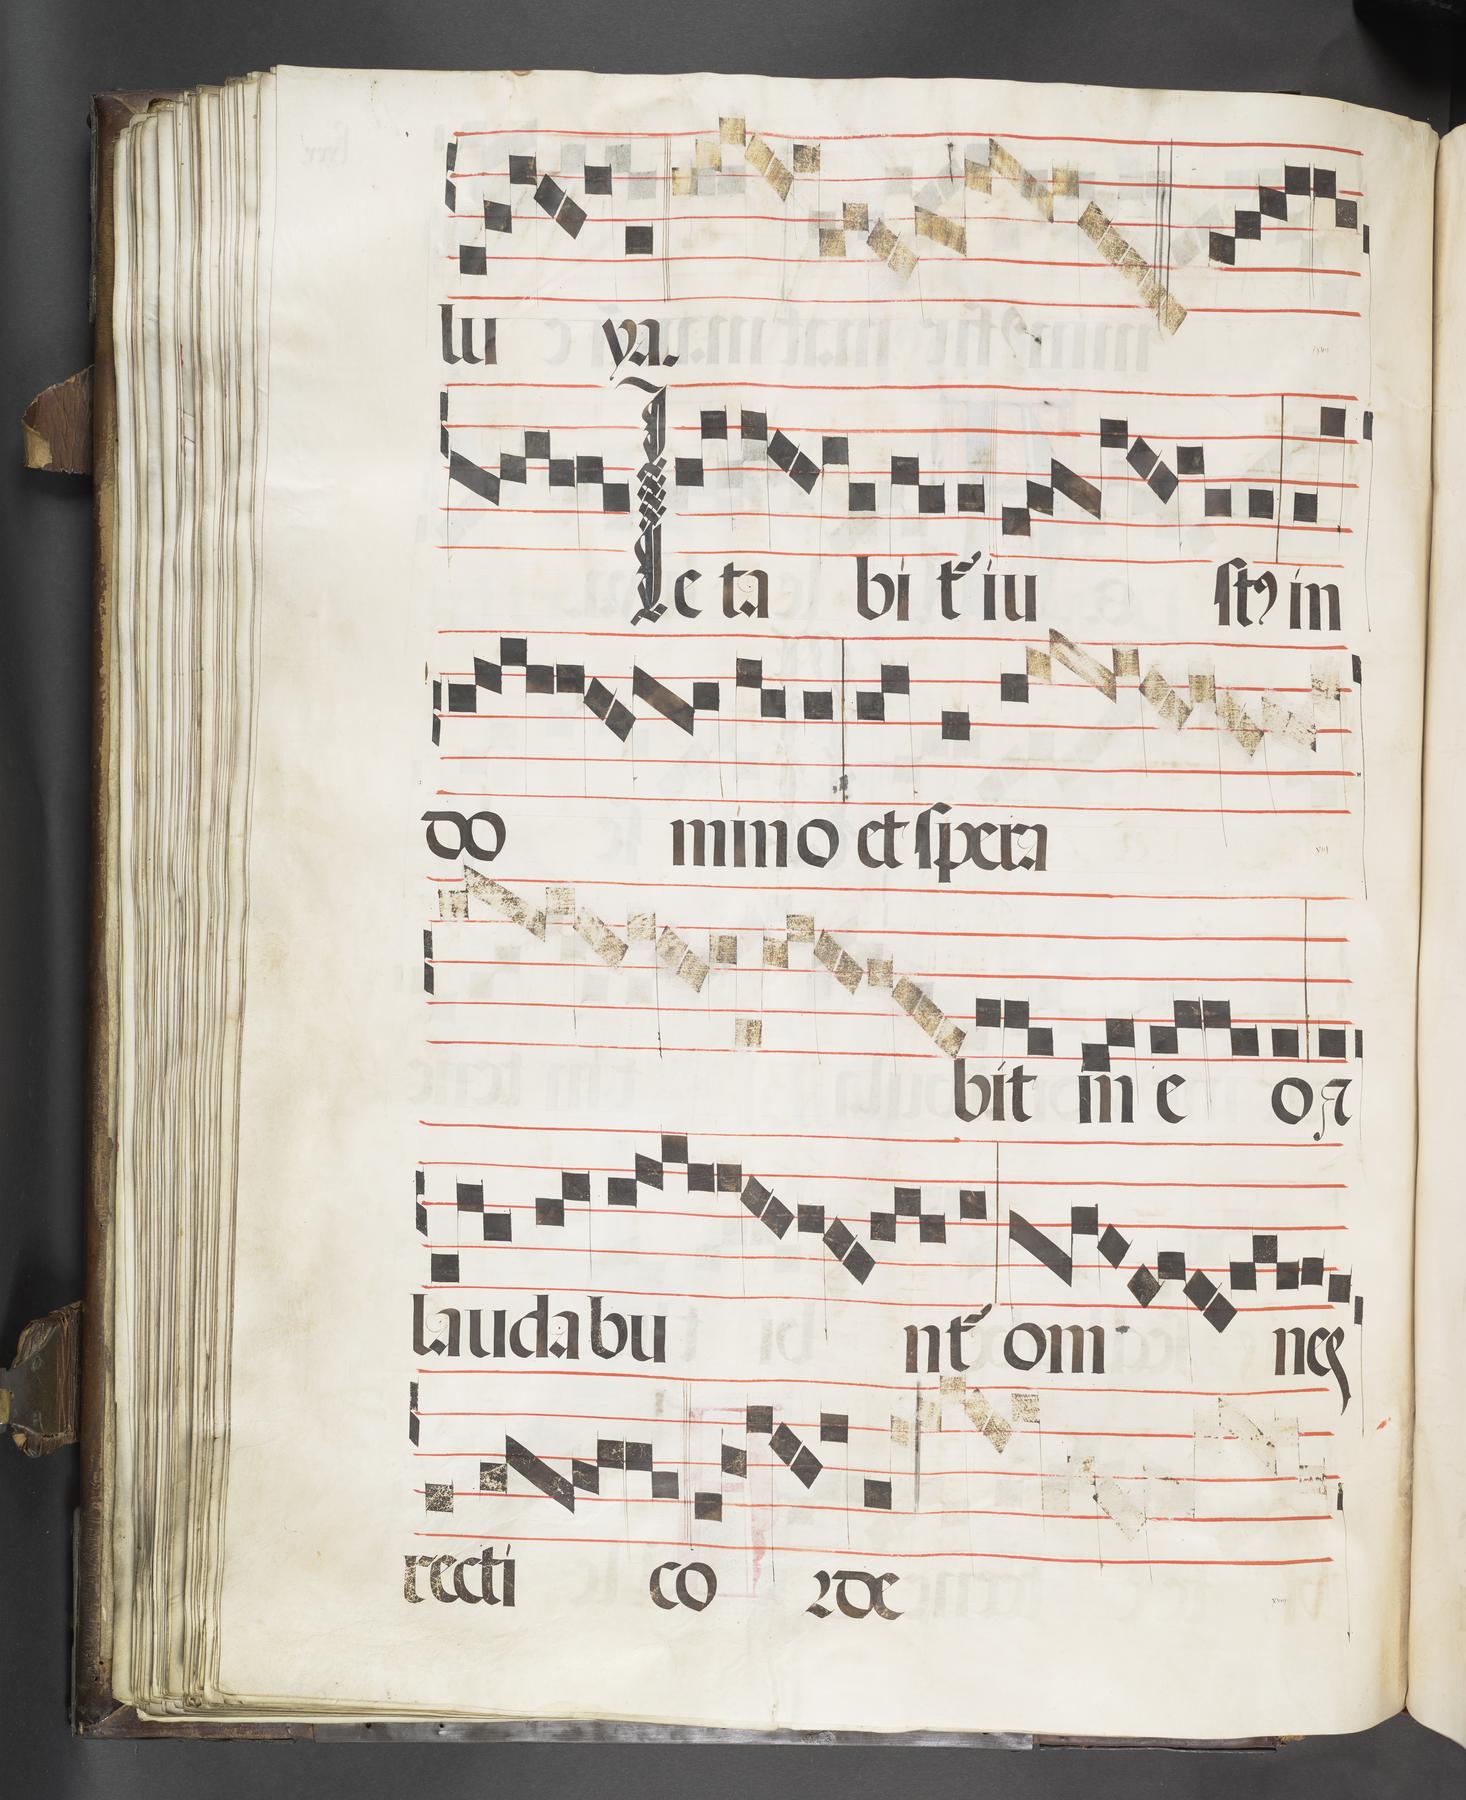 lu ya.
Le ta bi t᷑ iu stꝰ in
do mino et spera
bit in e o ꝛ
lauda bu nt᷑ om nes
recti co ꝛde